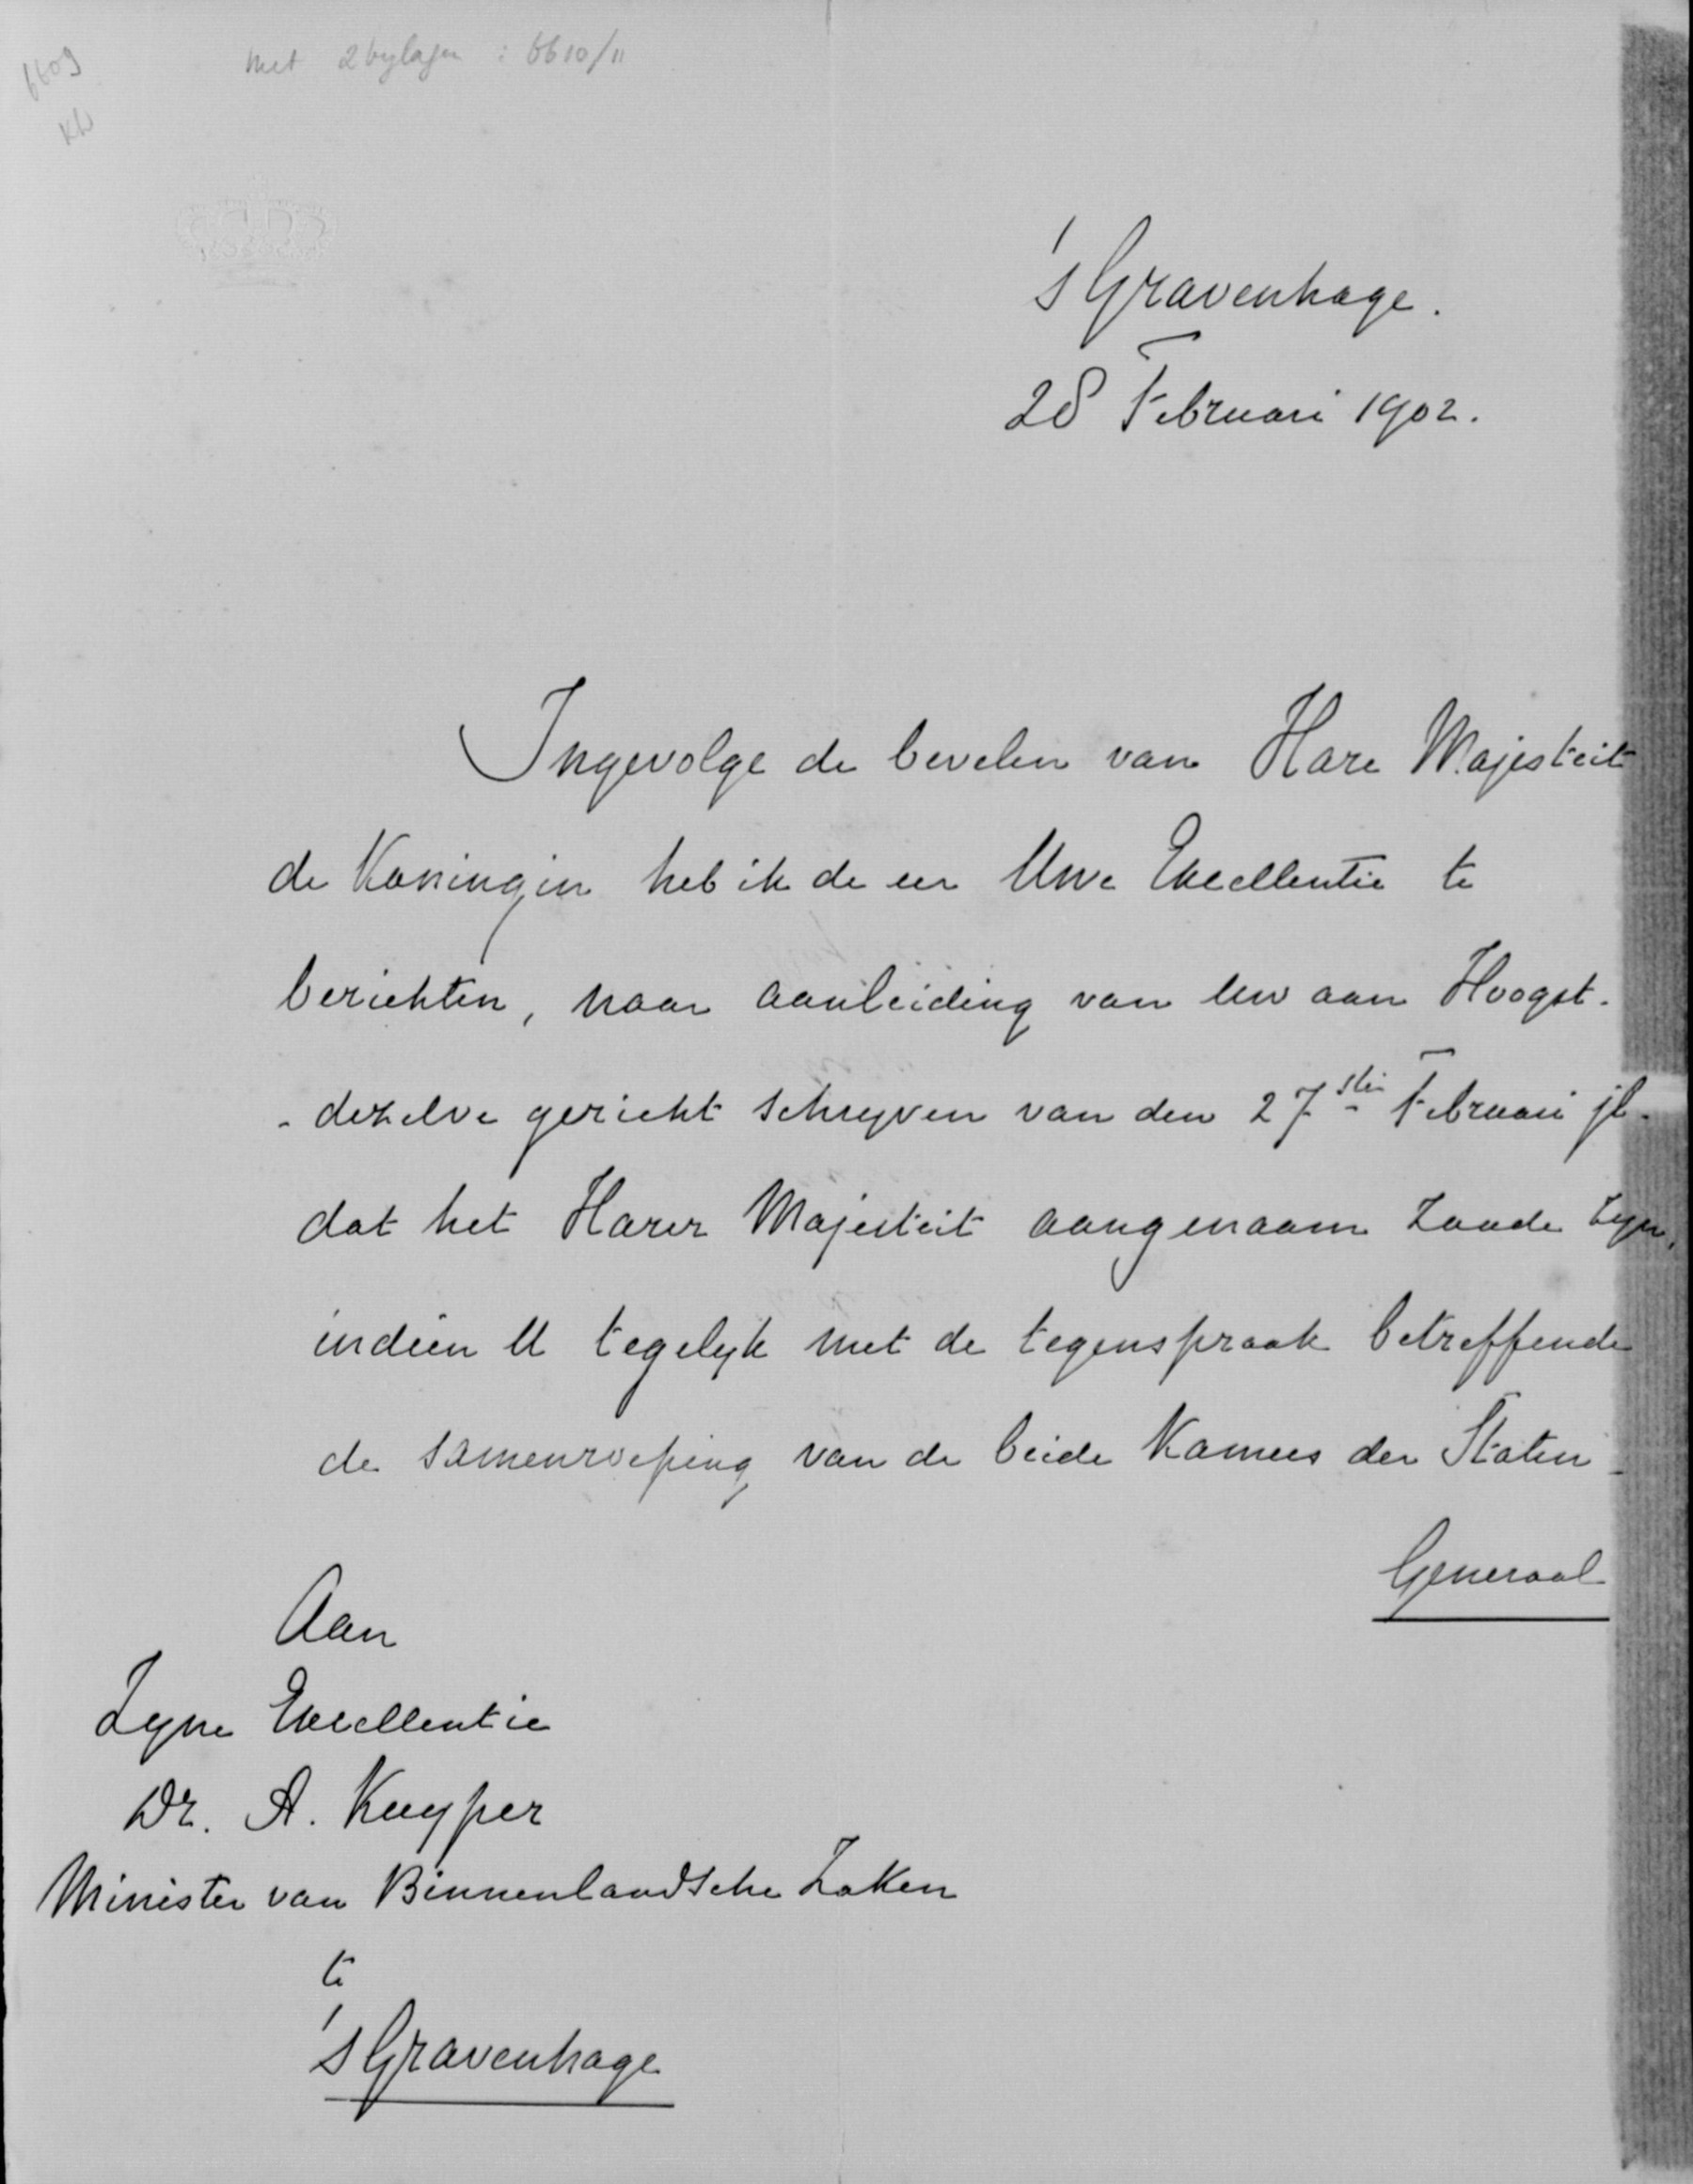 6609
met 2 bylagen : 6610/11
KW
's Gravenhage.
28 Februari 1902.
Ingevolge de bevelen van Hare Majesteit
de Koningin heb ik de eer Uwe Excellentie te
berichten, naar aanleiding van Uw aan Hoogst-
- dezelve gericht schryven van den 27ste Februari jl.
dat het Harer Majesteit aangenaam zoude zyn,
indien U tegelyk met de tegenspraak betreffende
de samenroeping van de beide Kamers der Staten-
Generaal
Aan
Zyne Excellentie
Dr. A. Kuyper
Minister van Binnenlandsche Zaken
te
's Gravenhage